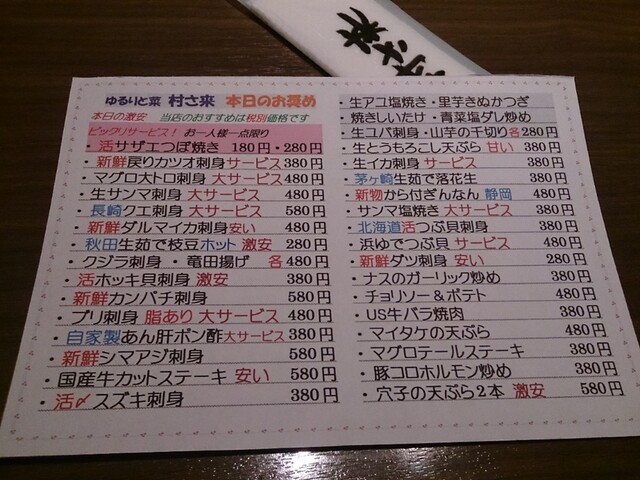 ゆるりと菜 村さ来 本日のお奨め
本日の激安 当店のおすすめは税別価格です
ビックリサービス! お一人様一点限り
・活サザエつぼ焼き 180円・280円
・新鮮戻りカツオ刺身サービス380円
・マグロ大トロ刺身 大サービス 480円
・生サンマ刺身 大サービス 480円
・長崎クエ刺身 大サービス 580円
・新鮮ダルマイカ刺身安い 480円
・秋田生茹で枝豆ホット 激安 280円
・クジラ刺身 ・ 竜田揚げ 各480円
・活ホッキ貝刺身 激安 380円
・新鮮カンパチ刺身 580円
・ブリ刺身 脂あり 大サービス 480円
・自家製あん肝ポン酢大サービス380円
・新鮮シマアジ刺身 580円
・国産牛カットステーキ 安い 580円
・活〆スズキ刺身 380円
・生アユ塩焼き・里芋きぬかつぎ
・焼きしいたけ・青菜塩ダレ炒め
・生コバ刺身・山芋の千切り各280円
・生とうもろこし天ぷら 甘い 380円
・生イカ刺身 サービス 380円
・茅ヶ崎生茹で落花生 380円
・新物から付ぎんなん 静岡 480円
・サンマ塩焼き 大サービス 380円
・北海道活つぶ貝刺身 380円
・浜ゆでつぶ貝 サービス 480円
・新鮮ダツ刺身 安い 280円
・ナスのガーリック炒め 380円
・チョリソー&ポテト 480円
・US牛バラ焼肉 380円
・マイタケの天ぷら 480円
・マグロテールステーキ 380円
・豚コロホルモン炒め 380円
・穴子の天ぷら2本 激安 580円